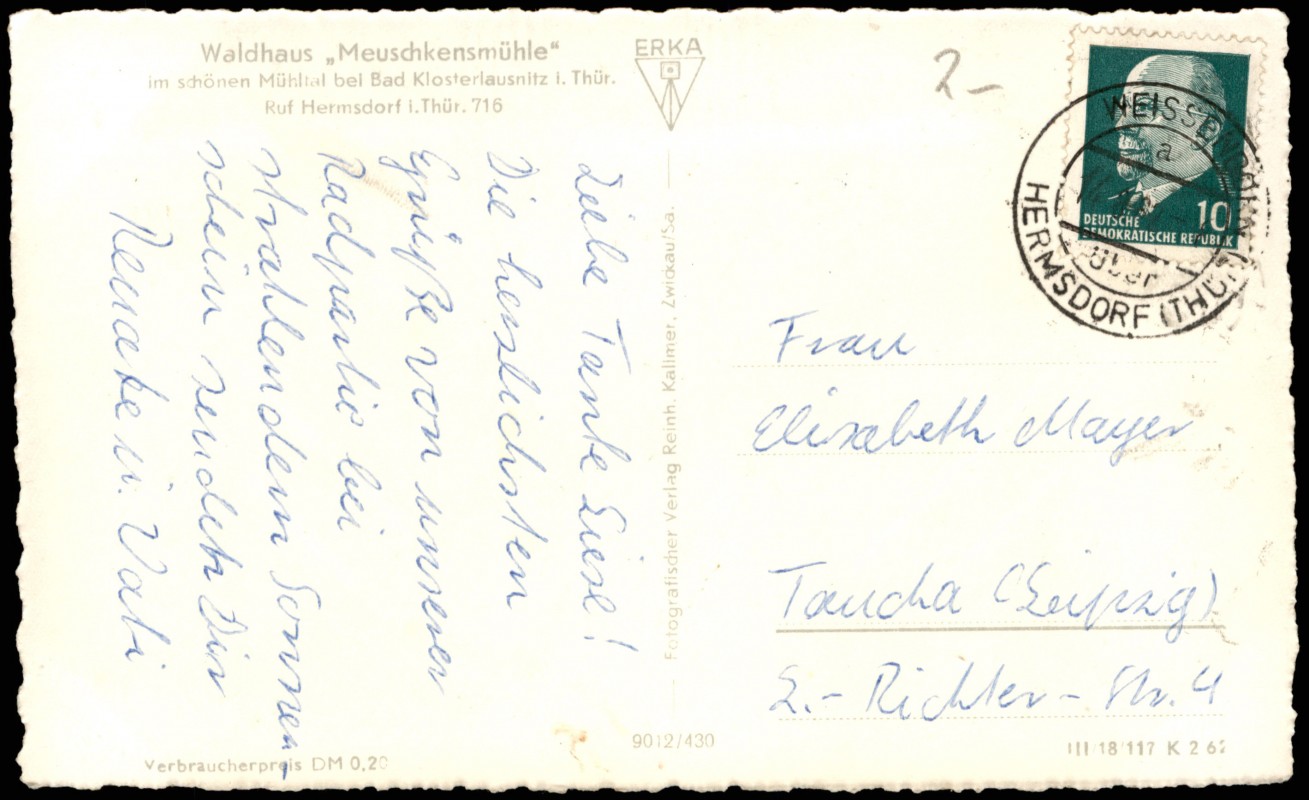 Waldhaus „Meuschkensmühle“
im schönen Mühltal bei Bad Klosterlausnitz i. Thür.
Ruf Hermsdorf i. Thür. 716
ERKA
2-
Liebe Tante Liese!
Die herzlichsten
Grüße von unserer
Radpartie bei
strahlendem Sonnen-
schein senden Dir
Renate u. Vati
Fotografischer Verlag Reinh. Kallmer, Zwickau/Sa.
Verbraucherpreis DM 0,20
9012/430
III/18/117 K 2 62
10
DEUTSCHE
DEMOKRATISCHE REPUBLIK
WEISSENBORN
a
über
HERMSDORF (THÜR)
Frau
Elisabeth Mayer
Taucha (Leipzig)
L.-Richter-Str. 4